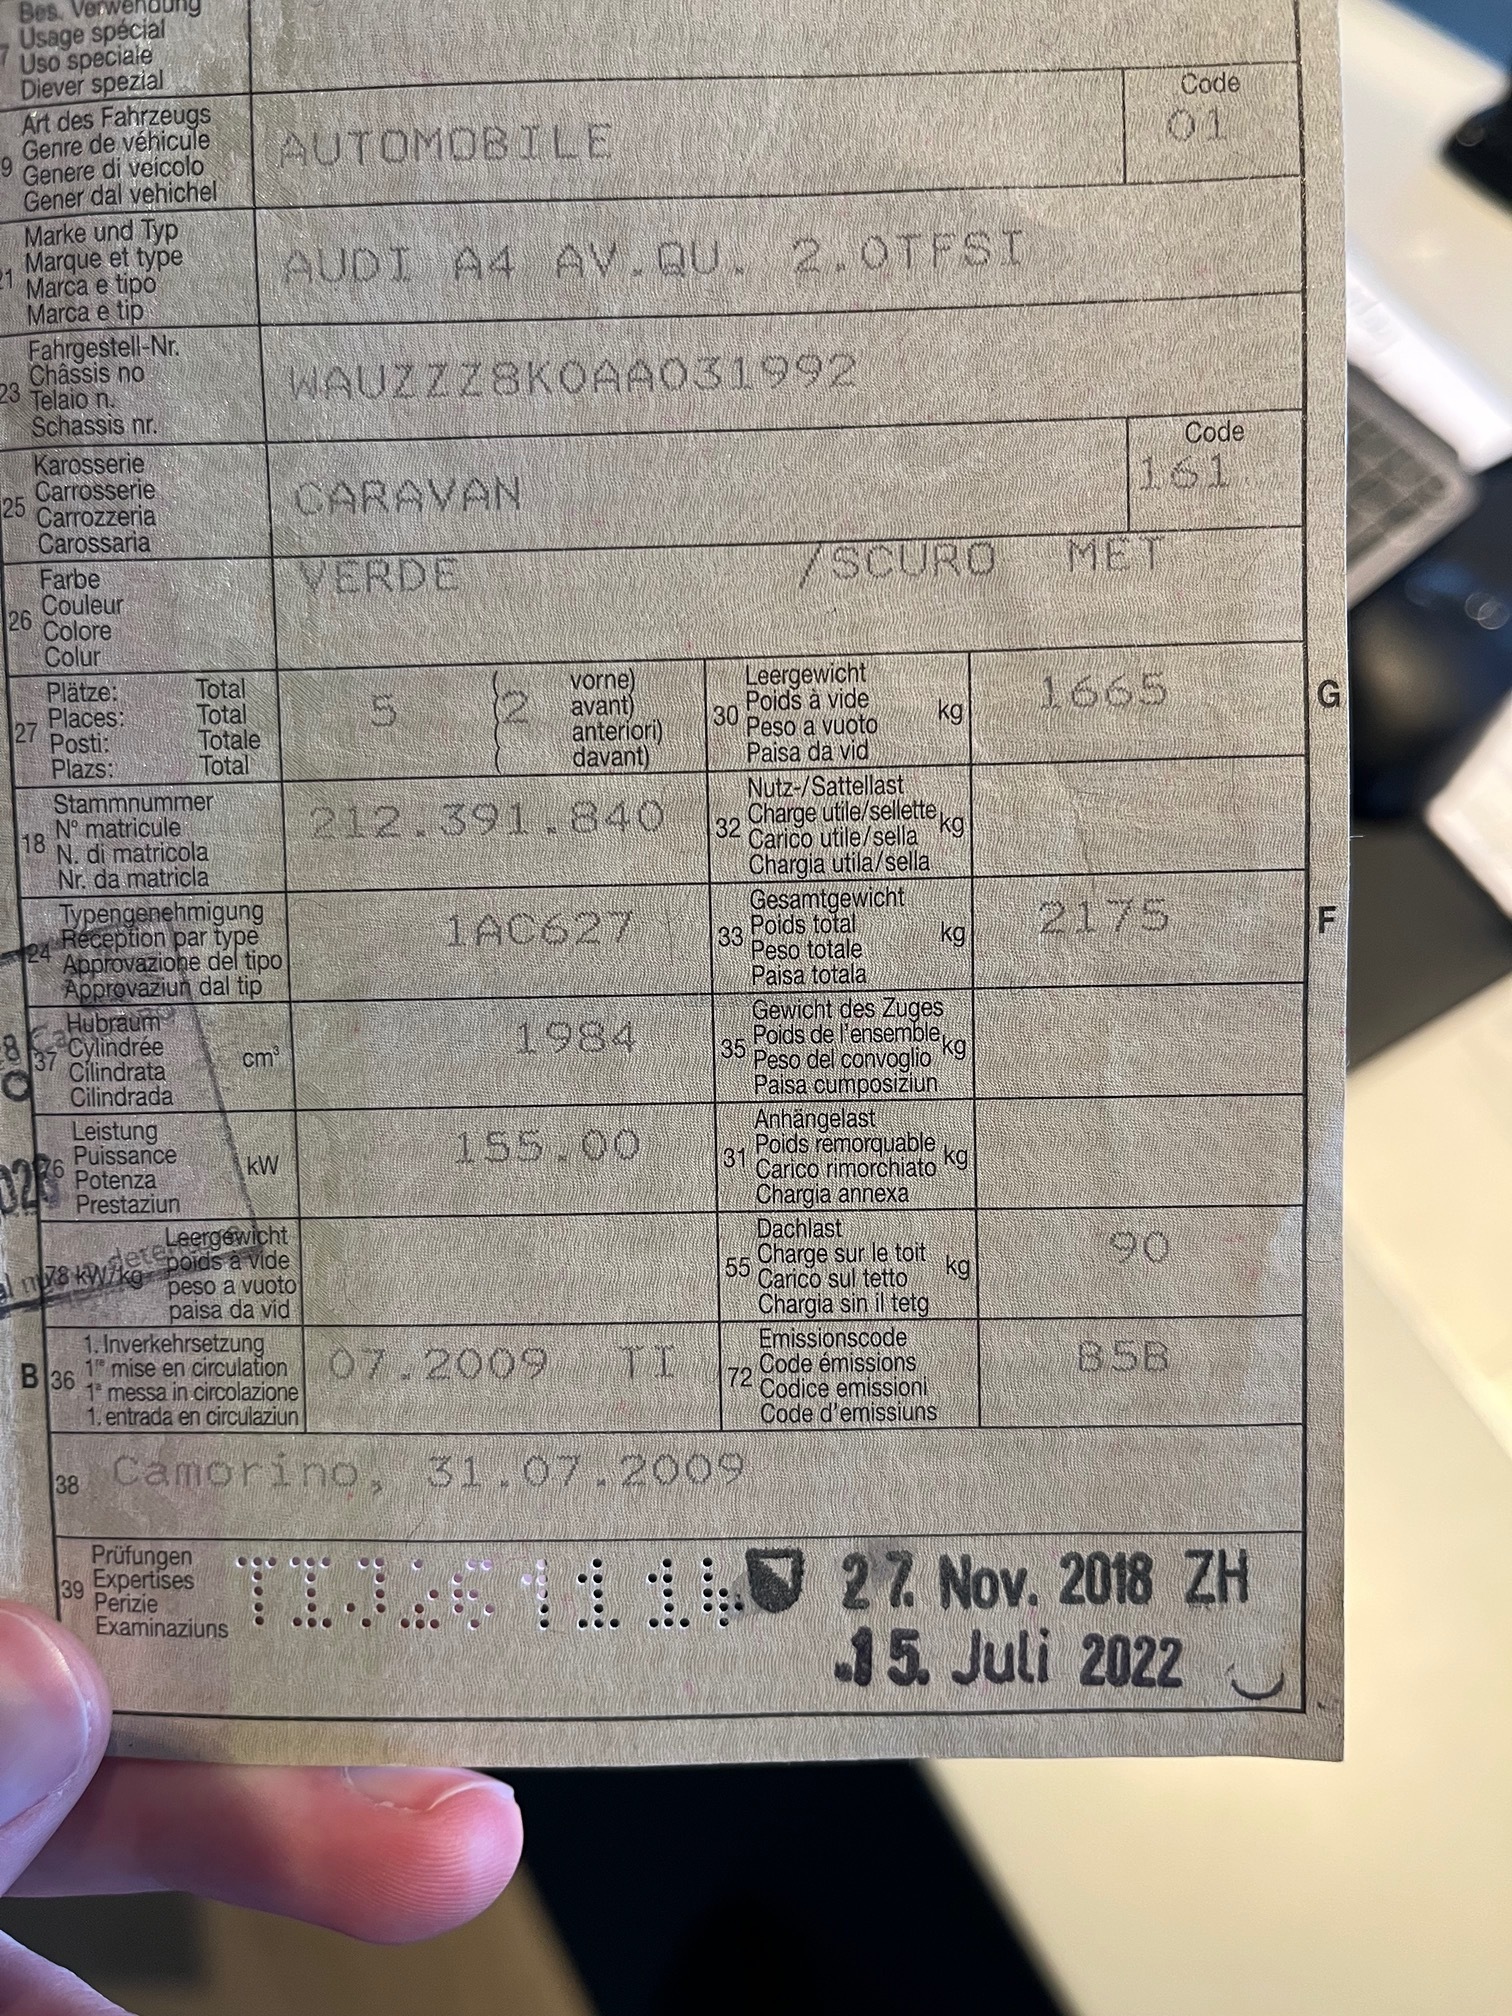 Bes. Verwendung
Usage spécial
Uso speciale
Diever spezial
Art des Fahrzeugs
9 Genre de véhicule
Genere di veicolo
Gener dal vehichel
AUTOMOBILE
Code
01
Marke und Typ
21 Marque et type
Marca e tipo
Marca e tip
AUDI A4 AV.QU. 2.0TFSI
Fahrgestell-Nr.
23 Châssis no
Telaio n.
Schassis nr.
WAUZZZ8K0AA031992
Karosserie
25 Carrosserie
Carrozzeria
Carossaria
CARAVAN
Code
161
Farbe
26 Couleur
Colore
Colur
VERDE /SCURO MET
27 Plätze: Total
Places: Total
Posti: Totale
Plazs: Total
5 (2 vorne)
avant)
anteriori)
davant)
30 Leergewicht
Poids à vide kg
Peso a vuoto
Paisa da vid
1665
G
18 Stammnummer
N° matricule
N. di matricola
Nr. da matricla
212.391.840
32 Nutz-/Sattellast
Charge utile/sellette kg
Carico utile/sella
Chargia utila/sella
24 Typengenehmigung
Réception par type
Approvazione del tipo
Approvaziun dal tip
1AC627
33 Gesamtgewicht
Poids total kg
Peso totale
Paisa totala
2175
F
37 Hubraum
Cylindrée cm³
Cilindrata
Cilindrada
1984
35 Gewicht des Zuges
Poids de l'ensemble kg
Peso del convoglio
Paisa cumposiziun
76 Leistung
Puissance kW
Potenza
Prestaziun
155.00
31 Anhängelast
Poids remorquable kg
Carico rimorchiato
Chargia annexa
78 kW/kg Leergewicht
poids à vide
peso a vuoto
paisa da vid
55 Dachlast
Charge sur le toit kg
Carico sul tetto
Chargia sin il tetg
90
B 36 1. Inverkehrsetzung
1re mise en circulation
1a messa in circolazione
1. entrada en circulaziun
07.2009 TI
72 Emissionscode
Code émissions
Codice emissioni
Code d'emissiuns
B5B
38 Camorino, 31.07.2009
39 Prüfungen
Expertises
Perizie
Examinaziuns
27. Nov. 2018 ZH
15. Juli 2022